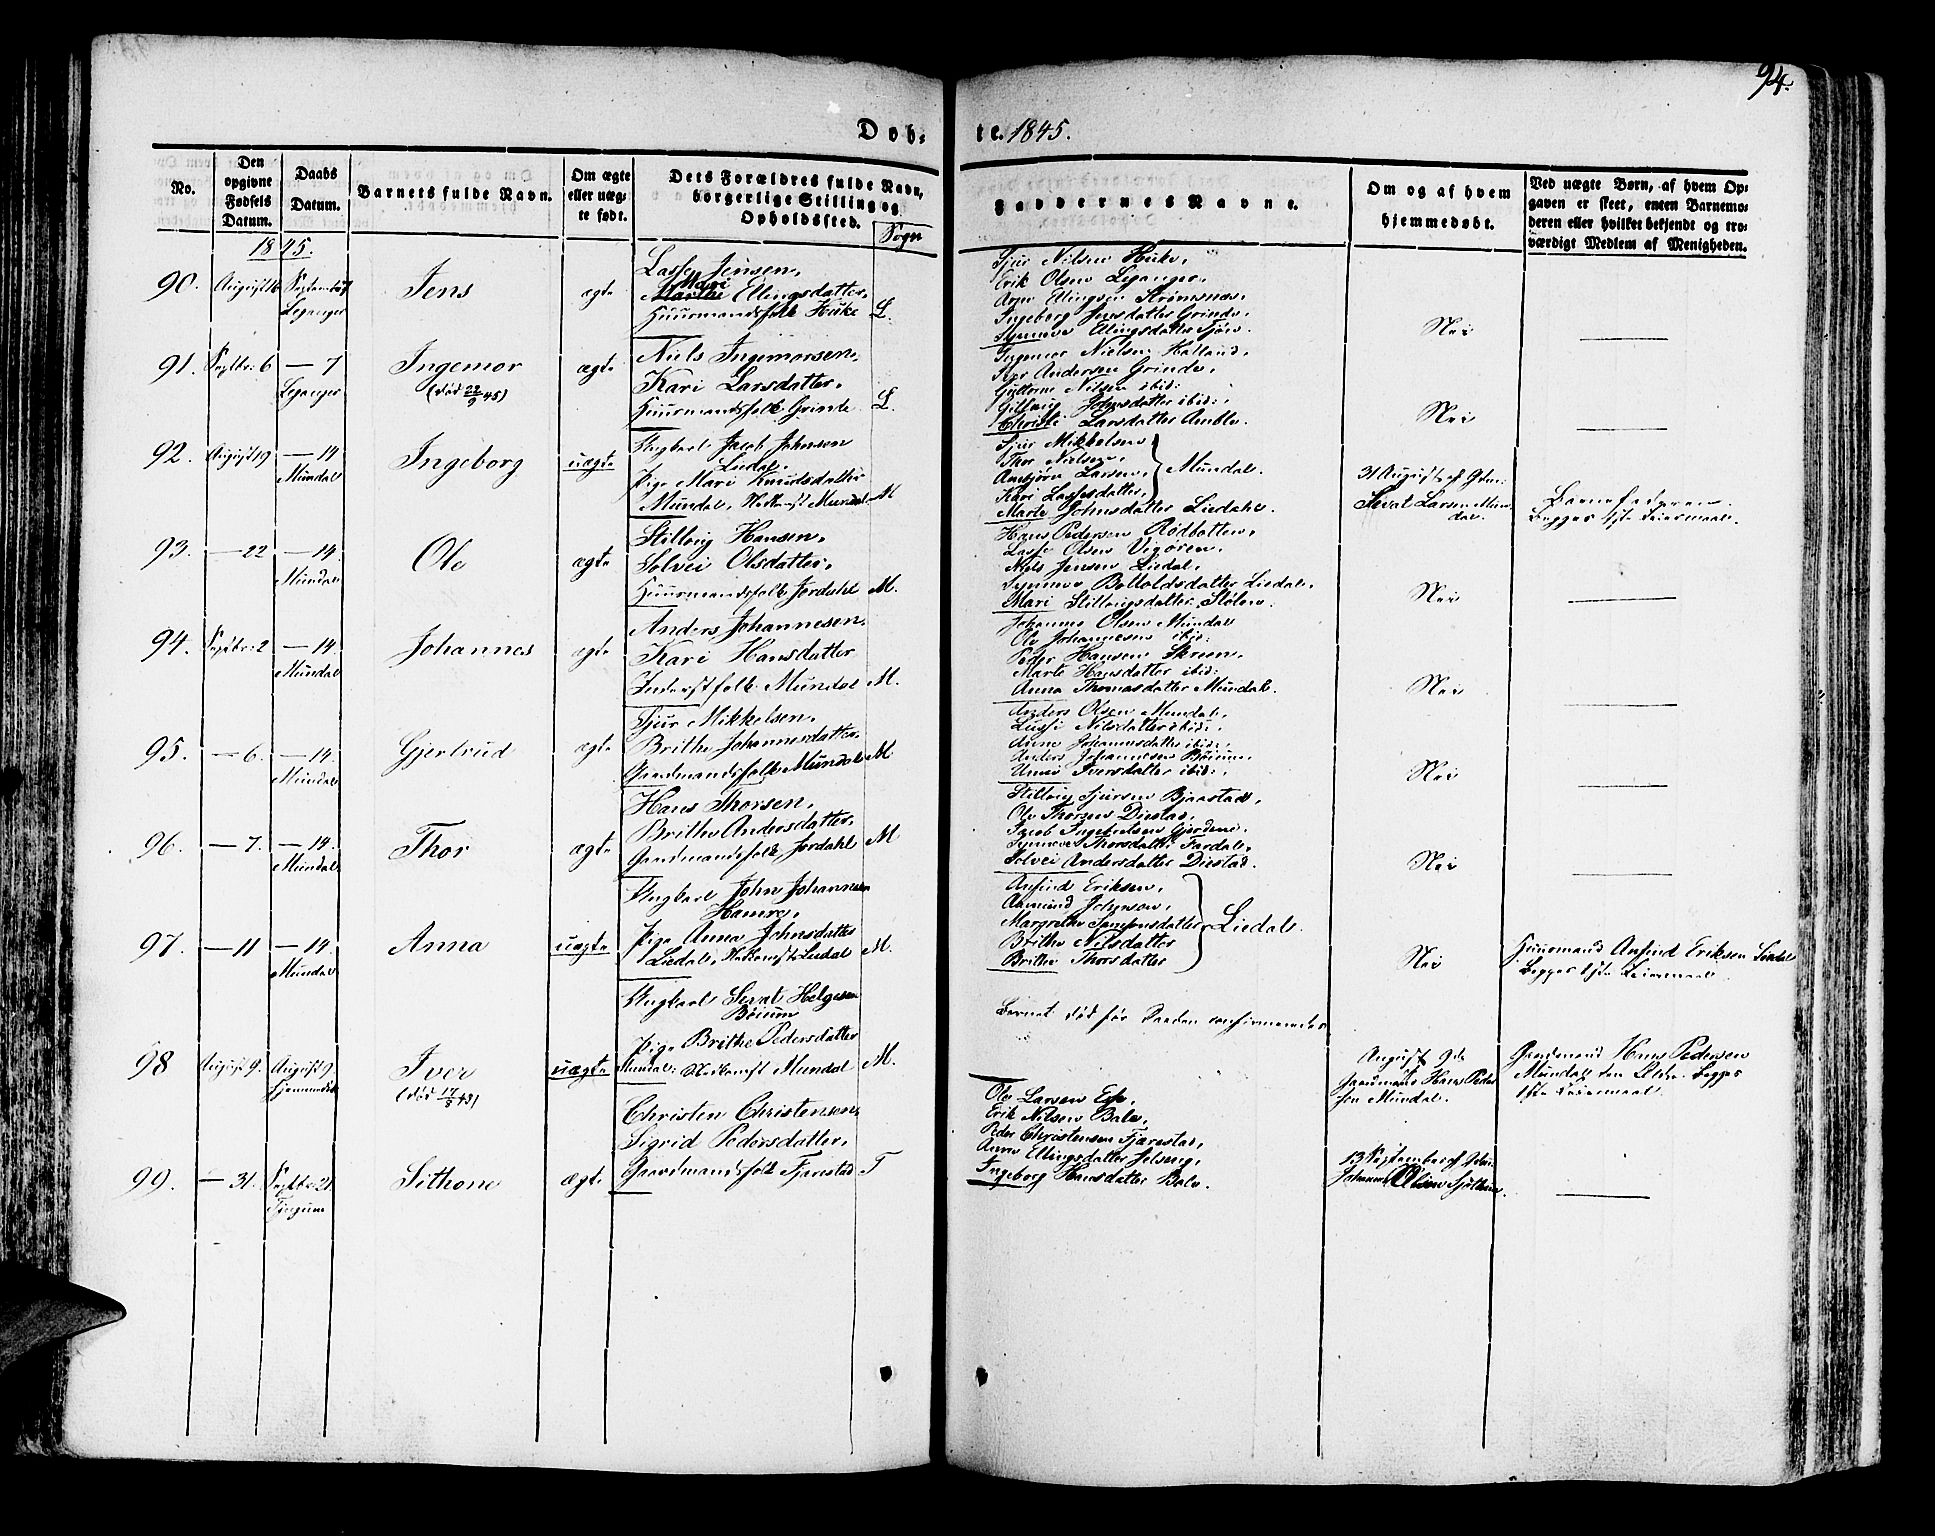 94.
Døb- te. 1845.
No.
Den opgivne Fødsels Datum.
Daabs Datum.
Barnets fulde Navn.
Om ægte eller uægte født.
Dets Forældres fulde Navn, borgerlige Stilling og Opholdssted.
Sogn
Faddernes Navne.
Om og af hvem hjemmedøbt.
Ved uægte Børn, af hvem Opgaven er skeet, enten Barnemoderen eller hvilket bekjendt og troværdigt Medlem af Menigheden.
1845.
90. August 16 September 7 Leganger
Jens
ægte
Lasse Jensen,
Mari Ellingsdatter,
Huusmandsfolk Huke L.
Sjur Nilsen Huke,
Erik Olsen Leganger,
Arne Ellingsen Strømsnæs,
Ingeborg Jensdatter Grinde,
Synneve Ellingsdatter
Nei
91. Septbr: 6 — 7 Leganger
Ingemor
(død 22/9 45)
ægte
Niels Ingemorsen,
Kari Larsdatter,
Huusmandsfolk Grinde L.
Ingemor Nielsen Hatland,
Iver Andersen Grinde,
Guttorm Nilsen ibid:
Gitlaug Johnsdatter ibid:,
Christi Larsdatter Amble.
Nei
92. August 19 — 14 Mundal
Ingeborg
uægte
Ungkarl Jacob Johnsen
Liedal,
Pige Mari Knudsdatter
Mundal, Mundal M
Sjur Mikkelsen,
Thor Nielsen,
Ansjøn Larsen,
Kari Lassesdatter, Mundal.
Marte Johnsdatter Liedahl.
31 August af Gdm:
Sivat Larsen Mundal.
Barnefaderen.
Begges 1ste Leiermaal.
93. — 22 — 14. Mundal
Ole
ægte
Stillaug Hansen,
Solvei Olsdatter,
Huusmandsfolk Jordahl M.
Hans Pedersen Rødbotten,
Lasse Olsen Vigøren,
Niels Jensen Liedal,
Synneve Botholdsdatter Liedal,
Mari Stillaugsdatter Stølen.
Nei
94. Septbr: 2 — 14. Mundal
Johannes
ægte
Anders Johannesen,
Kari Hansdatter
Inderstfolk Mundal M.
Johannes Olsen Mundal
Ole Johannesen ibid:
Peder Hansen Skreen,
Marte Hansdatter ibid:
Anna Thomasdatter Mundal.
Nei
95. — 6. — 14. Mundal
Gjertrud
ægte
Sjur Mikkelsen,
Brithe Johannesdatter,
Gaardmandsfolk Mundal M
Anders Olsen Mundal,
Lussi Nilsdatter ibid:,
Anne Johannesdatter ibid:,
Anders Johannesen Bøium,
Unni Iversdatter ibid:.
Nei
96. — 7. — 14. Mundal
Thor
ægte
Hans Thorsen,
Brithe Andersdatter,
Gaardmandsfolk Jordahl M
Stillaug Sjursen Bjaastad,
Ole Thorsen Diestad,
Jacob Ingebretsen Gjerdene,
Synneve Thorsdatter Fardal,
Solvei Andersdatter Diestad.
Nei
97. — 11 — 14. Mundal
Anna
uægte
Ungkarl John Johannesen
Hamre,
Pige Anna Johnsdatter
Liedal, Liedal M.
Anfind Eriksen,
Aamund Johnsen,
Margrethe Samsonsdatter
Brithe Nilsdatter
Brithe Thorsdatter Liedal.
Nei
Huusmand Anfind Eriksen Liedal
Begges 1ste Leiermaal.
98 August 9. August 9. Hjemmedøbt
Iver
(død
uægte
Ungkarl Sivat Helgesen
Bøium
Pige Brithe Pedersdatter
Mundal: Mundal M.
Barnet død før Daaben confirmeredes
August 9de
Gaardmand Hans Pedersen Mundal.
Gaardmand Hans Pedersen
Mundal den Eldre. Begges
1ste Leiermaal.
99. — 31. Septbr: 21.
Sithone
ægte
Christen Christensen,
Sigrid Pedersdatter,
Gaardmandsfolk Fjærestad T
Ole Larsen Esse,
Erik Nilsen Bale,
Peder Christensen Fjærestad,
Anne Ellingsdatter
Ingeborg Hansdatter Bale.
13 September af
Johannes Olsen